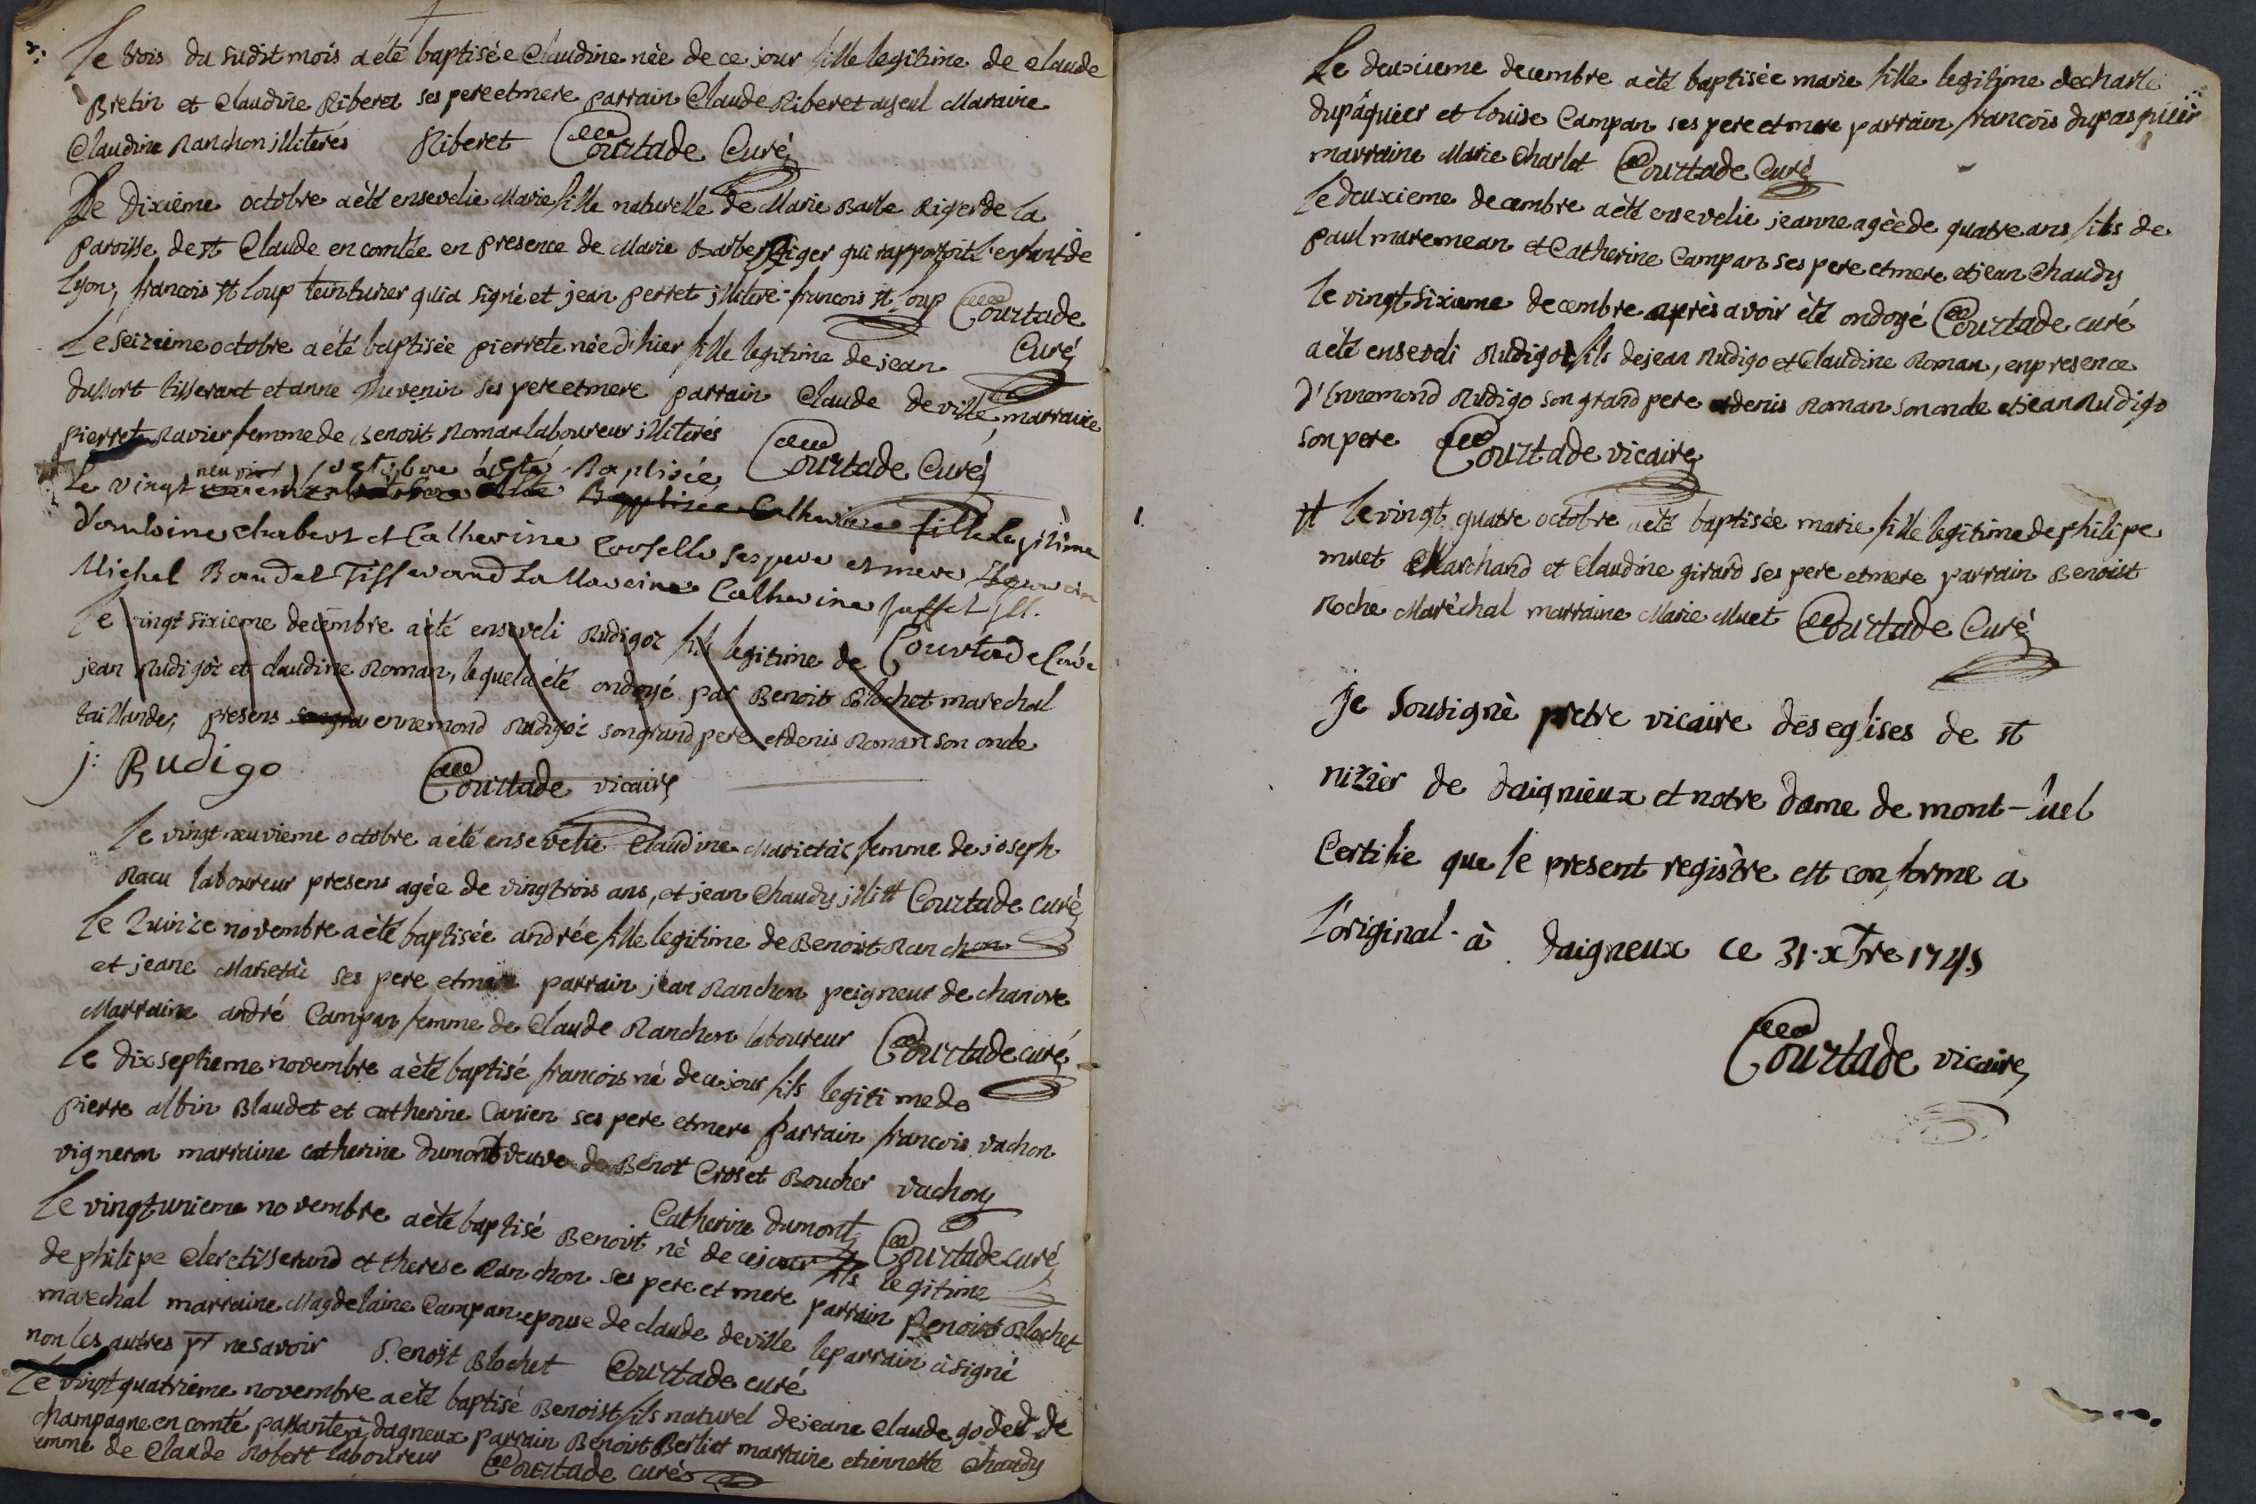 Le trois du sudit mois a été baptisée Claudine née de ce jour fille legitime de claude
Bretin et Claudine Riberet ses pere et mere parrain Claude Riberet ayeul Maraine
Claudine Ranchon illiterés Riberet Courtade Curé
Le Dixiéme octobre a été ensevelie Marie fille naturelle de Marie Riger de la
paroisse de st Claude en comtée en presence de Marie Riger qui rapportoit l'enfant de
Lyon, francois st Loup teinturier qui a signé et jean perret illiteré francois st Loup Courtade
Curé
Le seizeime octobre a été baptisée pierrete née d'hier fille legitime de jean
dussort tisserant et anne Thevenin ses pere et mere parrain Claude deville marraine
pierrete Ravier femme de Benoit Roman laboureur illiterés Courtade Curé
Le vingt neuvie octobre a esté Baptisée
Baptisée Catherine fille Legitime
d'antoine chabert et Catherine ses pere et mere
Michel Baudet Tisserand La Mareine Catherine
Courtade Curé
Le vingt sixieme decembre a été enseveli Rudigoz fils legitime de
jean Rudigoz et claudine Roman, lequel a été ondoyé par Benoit Blochet marechal
taillander, presens ennemond Rudigoz son grand pere et denis Roman son oncle
j: Rudigo Courtade vicaire
Le vingt neuvieme octobre a été ensevelie Claudine femme de joseph
Racu laboureur presens agée de vingtrois ans, et jean Chaudy illitt Courtade curé
Le Quinze novembre a été baptisée andrée fille legitime de Benoist Ranchon
et jeane ses pere et mere parrain jean Ranchon peigneur de chanvre
Marraine andré Campan femme de Claude Ranchon laboureur Courtade curé
Le dixseptieme novembre a été baptisé francois né de ce jour fils legitime de
pierre albin Blaudet et catherine Canien ses pere et mere parrain francois vachon
vigneron marraine catherine dumont veuve de Benoit Croset Boucher vachon
Catherine dumont Courtade curé
Le vingtunieme novembre a été baptisé Benoit né de ce jour fils legitime
de philipe Clerc tisserand et therese Ranchon ses pere et mere parrain Benoist Blochet
marechal marraine Magdelaine Campan epouse de claude deville le parrain a signé
non les autres pr ne savoir Benoist Blochet Courtade curé
Le vingt quatriéme novembre a été baptisé Benoist fils naturel de jeane Claude godet de
champagne en comté passante à dagneux parrain Benoist Berliet marraine etiennette chaudy
emme de Claude Robert laboureur Courtade curé
Le deuxieme decembre a été baptisée marie fille legitime de charle
dupâquier et louise Campan ses pere et mere parrain francois dupasquier
marraine Marie Charlet Courtade Curé
Le deuxieme decembre a été ensevelie jeanne agèe de quatre ans fils de
paul maremean et Catherine Campan ses pere et mere et jean Chaudy
Courtade curé
Le vingt sixieme decembre après avoir été ondoyé
a été enseveli Rudigoz fils de jean Rudigo et Claudine Roman, en presence
d'Ennemond Rudigo son grand pere et denis Roman son oncle et jean Rudigo
son pere Courtade vicaire
# Le vingt quatre octobre a été baptisée marie fille legitime de philipe
muet Marchand et Claudine girard ses pere et mere parrain Benoist
Roche Maréchal marraine Marie Muet Courtade Curé
Je sousigné pretre vicaire des eglises de st
nizier de daignieux et notre dame de mont-luel
Certifie que le present registre est conforme a
l'original. à daigneux ce 31. xbre 174
Courtade vicaire